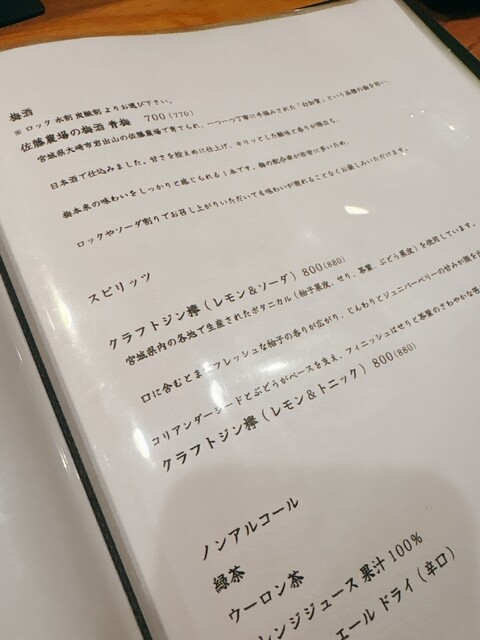 梅酒
※ ロック 水割 炭酸割 よりお選び下さい。
佐藤農場の梅酒 青梅 700 (770)
宮城県大崎市岩出山の佐藤農場で育てられ、一つ一つ丁寧に手摘みされた「白加賀」という品種の梅を用い、
日本酒で仕込みました。甘さを控えめに仕上げ、キリッとした酸味と香りが際立ち、
梅本来の味わいをしっかりと感じられる1本です。梅の配合率が非常に多いため、
ロックやソーダ割りでお召し上がりいただいても味わいが崩れることなくお楽しみいただけます。
スピリッツ
クラフトジン欅 (レモン&ソーダ) 800 (880)
宮城県内の各地で生産されたボタニカル (柚子果皮、せり、茶葉、ぶどう果皮) を使用しています。
口に含むとまずフレッシュな柚子の香りが広がり、じんわりとジュニパーベリーの甘みが顔を
コリアンダーシードとぶどうがベースを支え、フィニッシュはせりと茶葉のさわやかな
クラフトジン欅 (レモン&トニック) 800 (880)
ノンアルコール
緑茶
ウーロン茶
レンジジュース 果汁100%
エール ドライ (辛口)